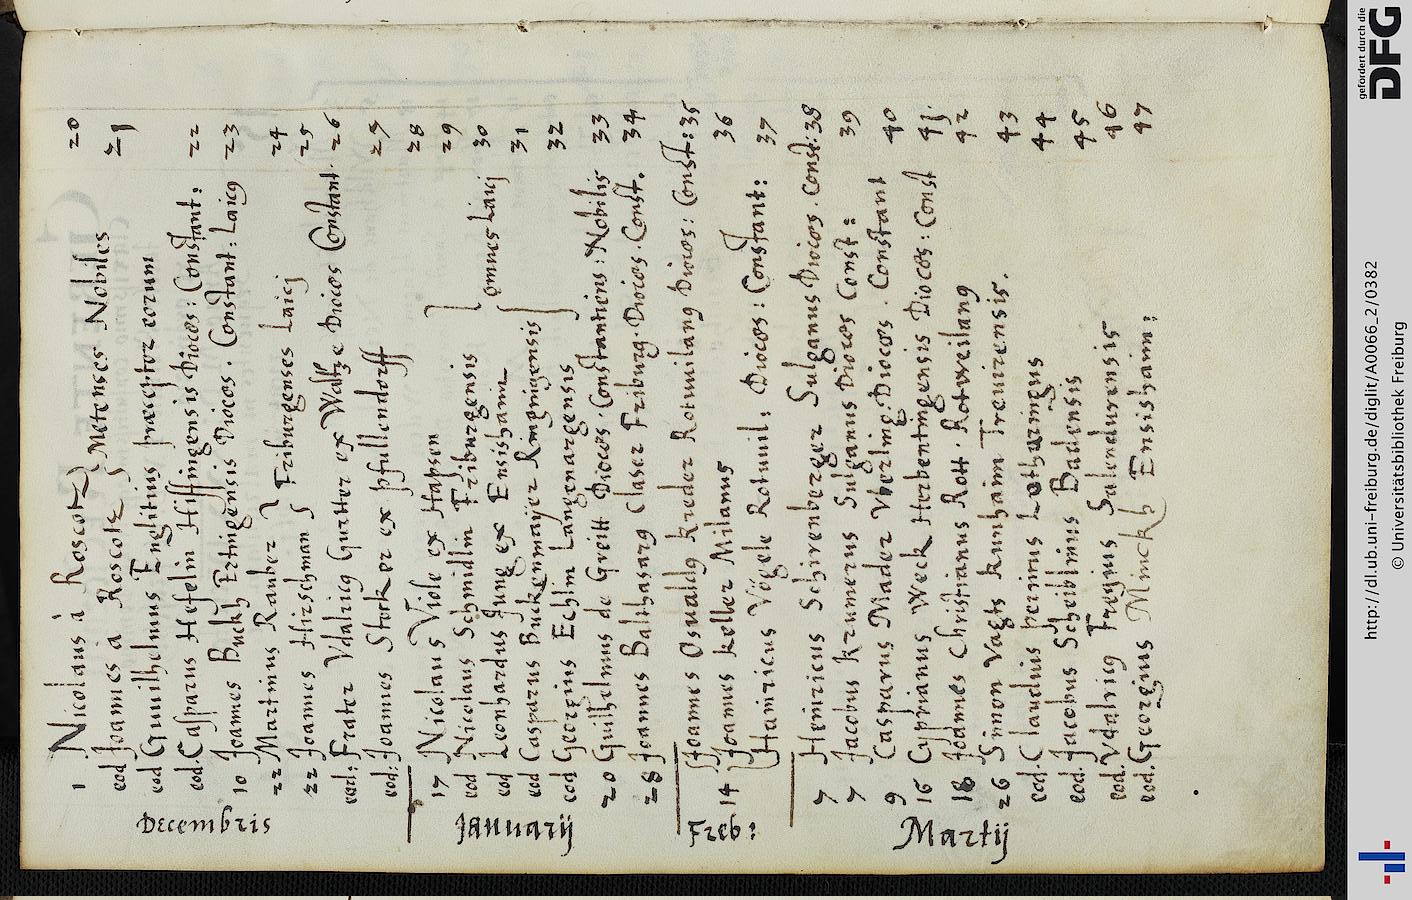 Decembris
1 Nicolaus à Roscotz } Metenses Nobiles 20
eod Joannes a Roscotz 21
eod Guilhelmus Englitius præceptor eorum
eod. Casparus Hefelin Hiffingensis Dioces: Constant: 22
10 Joannes Buckh Ertingensis Dioces. Constant: Laicus 23
22 Martinus Rauber } Friburgenses Laicj 24
22 Joannes Hirschman 25
eod: Frater Vdalricus Gualter ex Waltze Dioces Constant. 26
eod: Joannes Storker ex Pfullendorff 27
Januarij
17 Nicolaus Viole ex Hapsen 28
eod Nicolaus Schmidlin Friburgensis 29
eod Leonhardus Jung ex Ensishaim 30
omnes Laicj
eod Casparus Buckenmayer Ringingensis 31
eod Georgius Echlin Langenargensis 32
20 Guilhelmus de Greitt Dioces. Constantiens: Nobilis 33
28 Joannes Balthasarus Claser Friburg. Dioces. Const. 34
Freb:
14 Joannes Osualdus Kreder Rotwilanus Dioces: Const: 35
Joannes Keller Milanus 36
Hainricus Vögele Rotwil: Diocos: Constant: 37
Martij
7 Henricus Schirenberger Sulganus Dioces. Const: 38
7 Jacobus Krumerus Sulganus Dioces Const: 39
9 Casparus Mader Vberling: Dioces. Constant 40
16 Cyprianus Weck Herbentingensis Dioces: Const 41.
18 Joannes Christianus Rott. Rotweilanus 42
26 Simon Vagts Kunhaim Treuirensis. 43
eod. Claudius perinus Lotharingus 44
eod. Jacobus Scheiblinus Badensis 45
eod. Vdalricus Fruginus Salendurensis 46
eod. Georgius Minckh Ensishaim: 47
gefördert durch die DFG
http://dl.ub.uni-freiburg.de/diglit/A0066_2/0382
© Universitätsbibliothek Freiburg